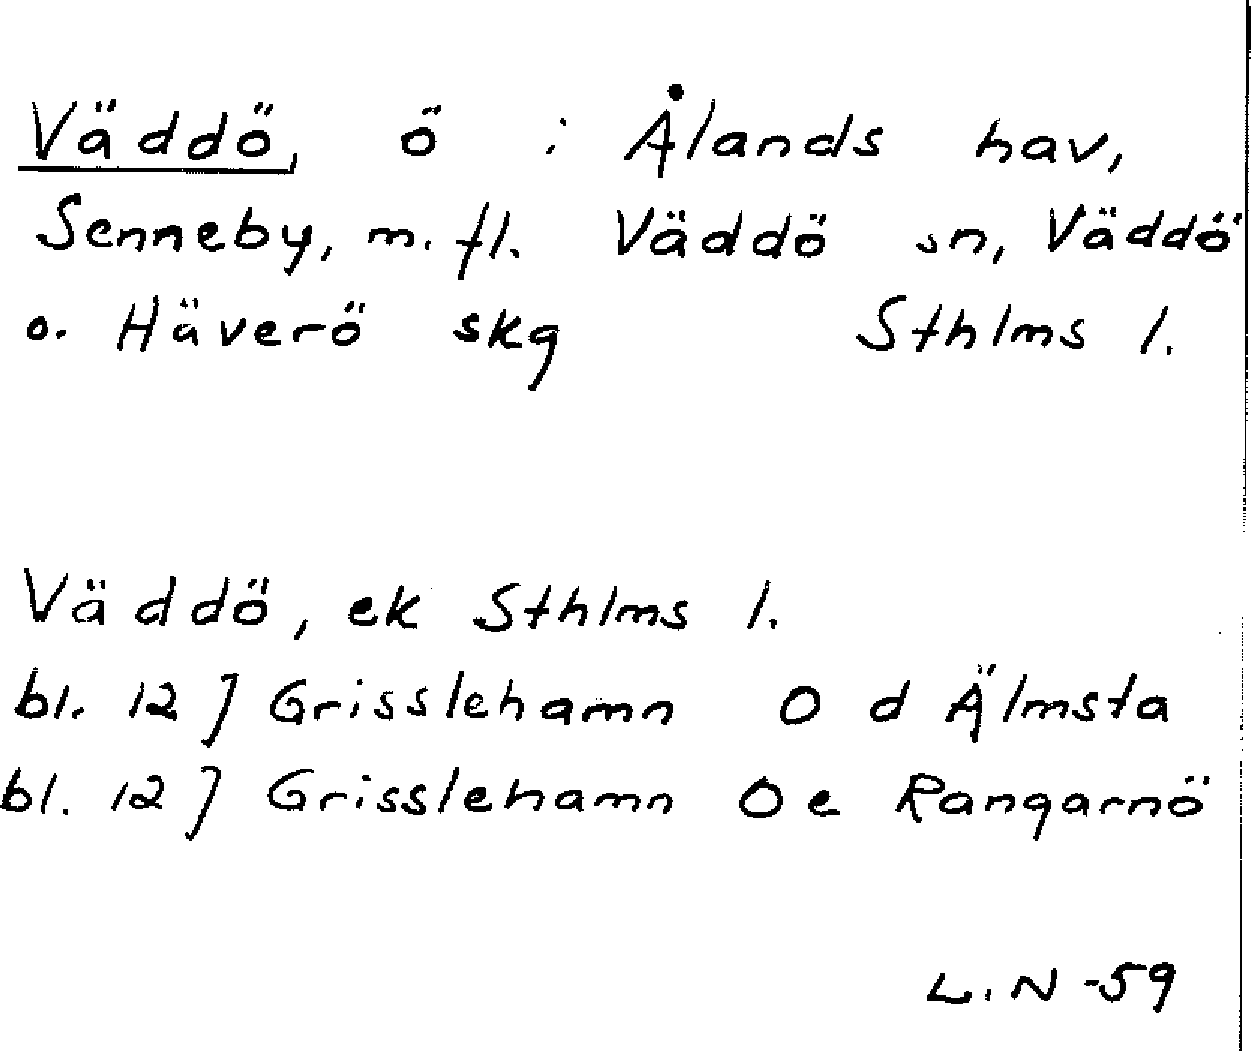 Väddö, ö i Ålands hav,
Senneby, m.fl. Väddö sn, Väddö
o. Häverö skg Sthlms l.
Väddö, ek Sthlms l.
bl. 12 J Grisslehamn O d Älmsta
bl. 12 J Grisslehamn O e Rangarnö
L.N -59